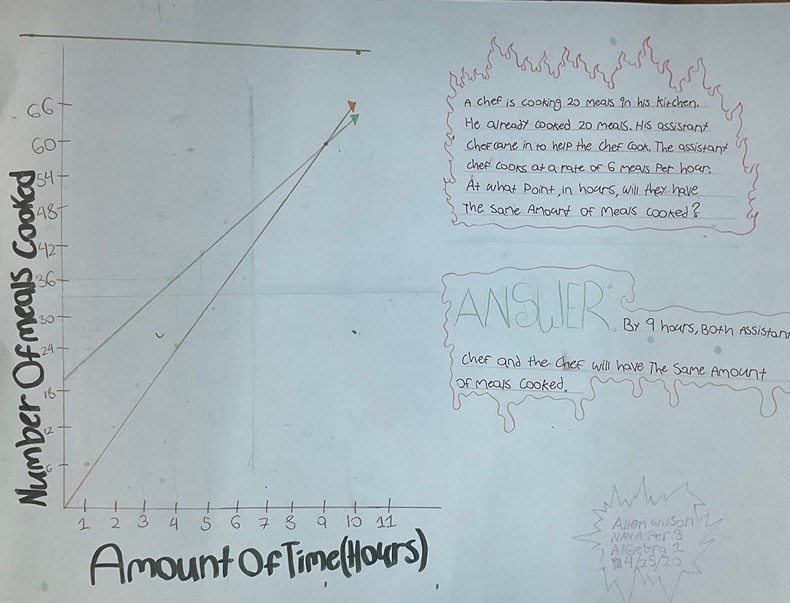 A chef is cooking 20 meals in his kitchen.
He already cooked 20 meals. His assistant
chef came in to help the chef cook. The assistant
chef cooks at a rate of 6 meals per hour.
At what point, in hours, will they have
the same amount of meals cooked?
ANSWER:
By 9 hours, Both Assistan
chef and the chef will have the same Amount
of meals cooked.
Number Of meals Cooked
66
60
54
48
42
36
30
24
18
12
6
1 2 3 4 5 6 7 8 9 10 11
Amount Of Time(Hours)
Allen Wilson
Per 3
Algebra 1